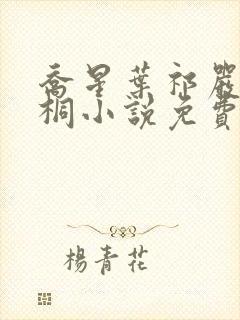 喬星葉祁嚴
桐小說免費
楊青花